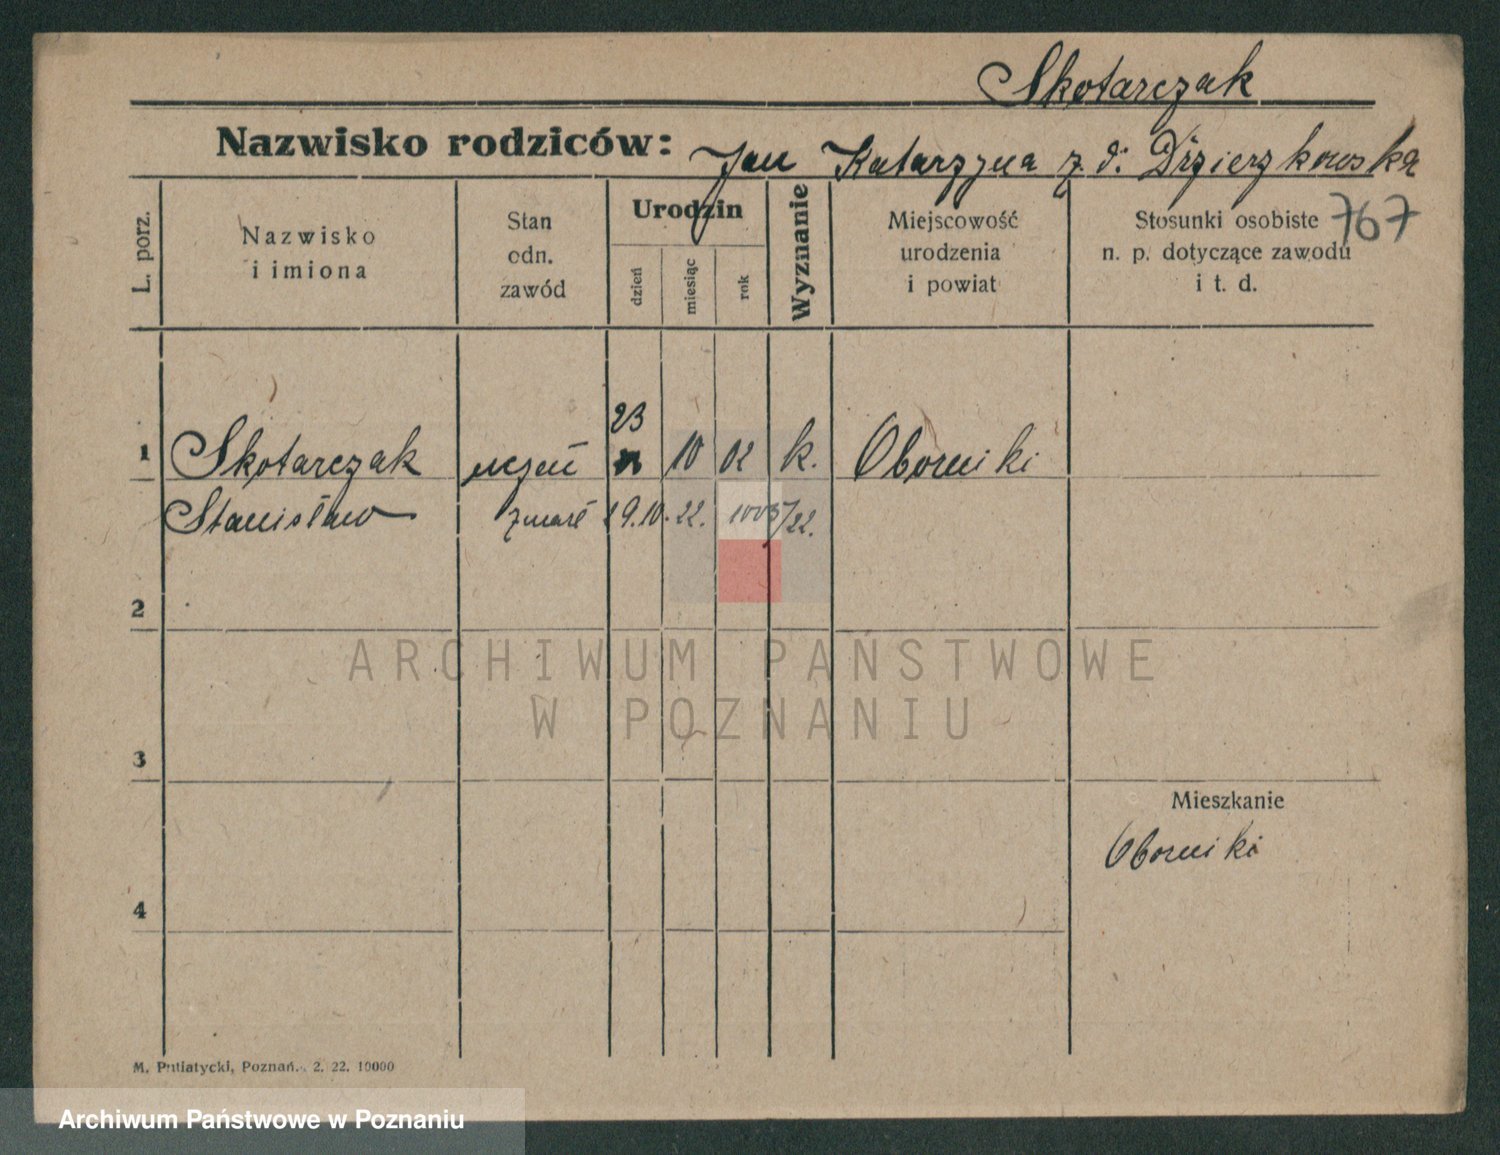 Skotarczak
Nazwisko rodziców: Jan Katarzyna z d. Dzierzkowska
767
L. porz.
Nazwisko i imiona
Stan odn. zawód
Urodzin
dzień
miesiąc
rok
Wyznanie
Miejscowość urodzenia i powiat
Stosunki osobiste n. p. dotyczące zawodu i t. d.
23
1 Skotarczak uczeń 10 02 k. Oborniki
Stanisław zmarł 29.10.22. 1003/22.
2
ARCHIWUM PAŃSTWOWE
W POZNANIU
3
Mieszkanie
Oborniki
4
M. Putiatycki, Poznań. 2. 22. 10000
Archiwum Państwowe w Poznaniu